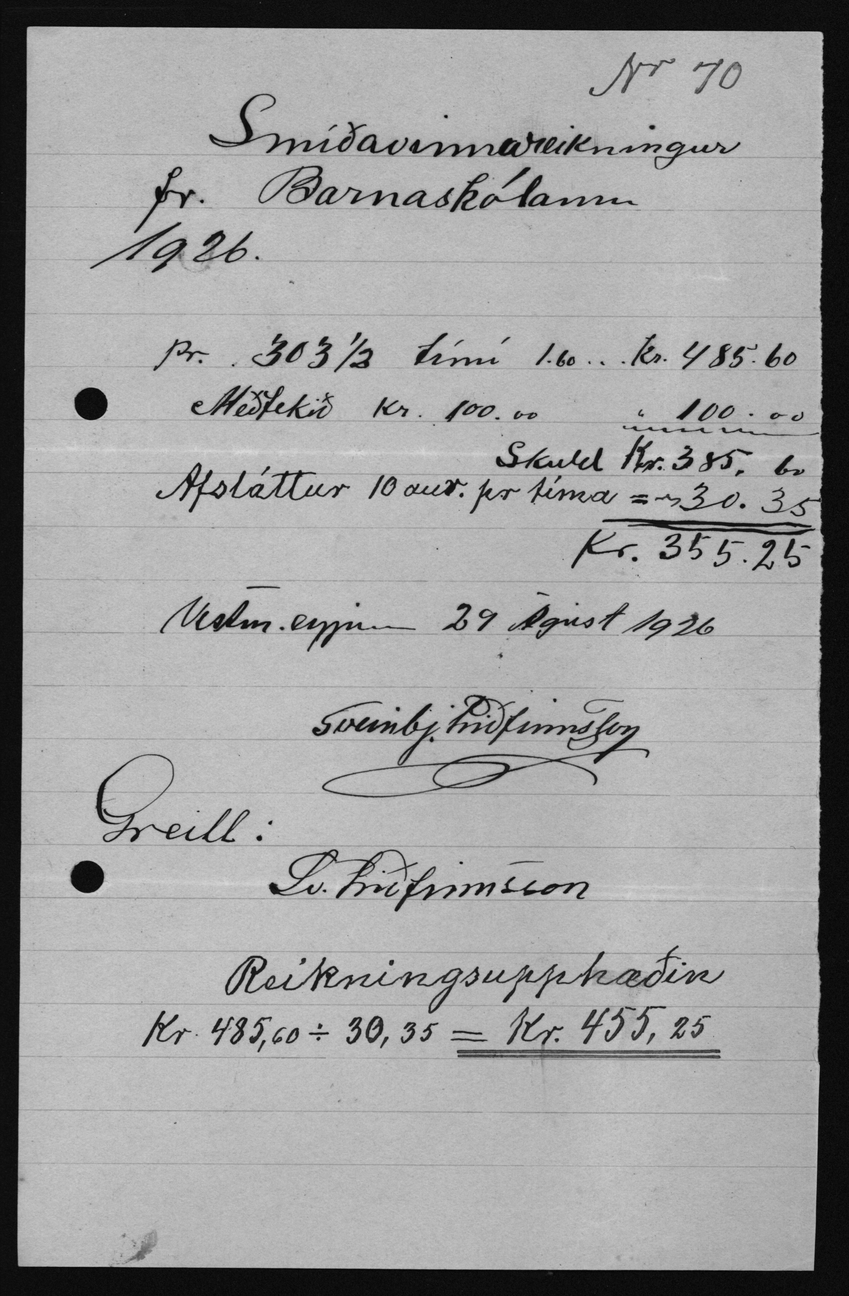 Nr 70
Smíðavinnureikningur
fr. Barnaskólanum
1926.
pr. 303 1/2 tími 1.60 .. . Kr. 485.60
Meðtekið Kr. 100.00 " 100.00
Skuld Kr. 385, 60
Afsláttur 10 aur. pr tíma = ~ 30.35
Kr. 355.25
Vestm.eyjum 29 Ágúst 1926
Sveinbj. Friðfinnsson
Greitt:
Sv. Friðfinnsson
Reikningsupphæðin
Kr. 485,60 ÷ 30,35 = Kr. 455,25